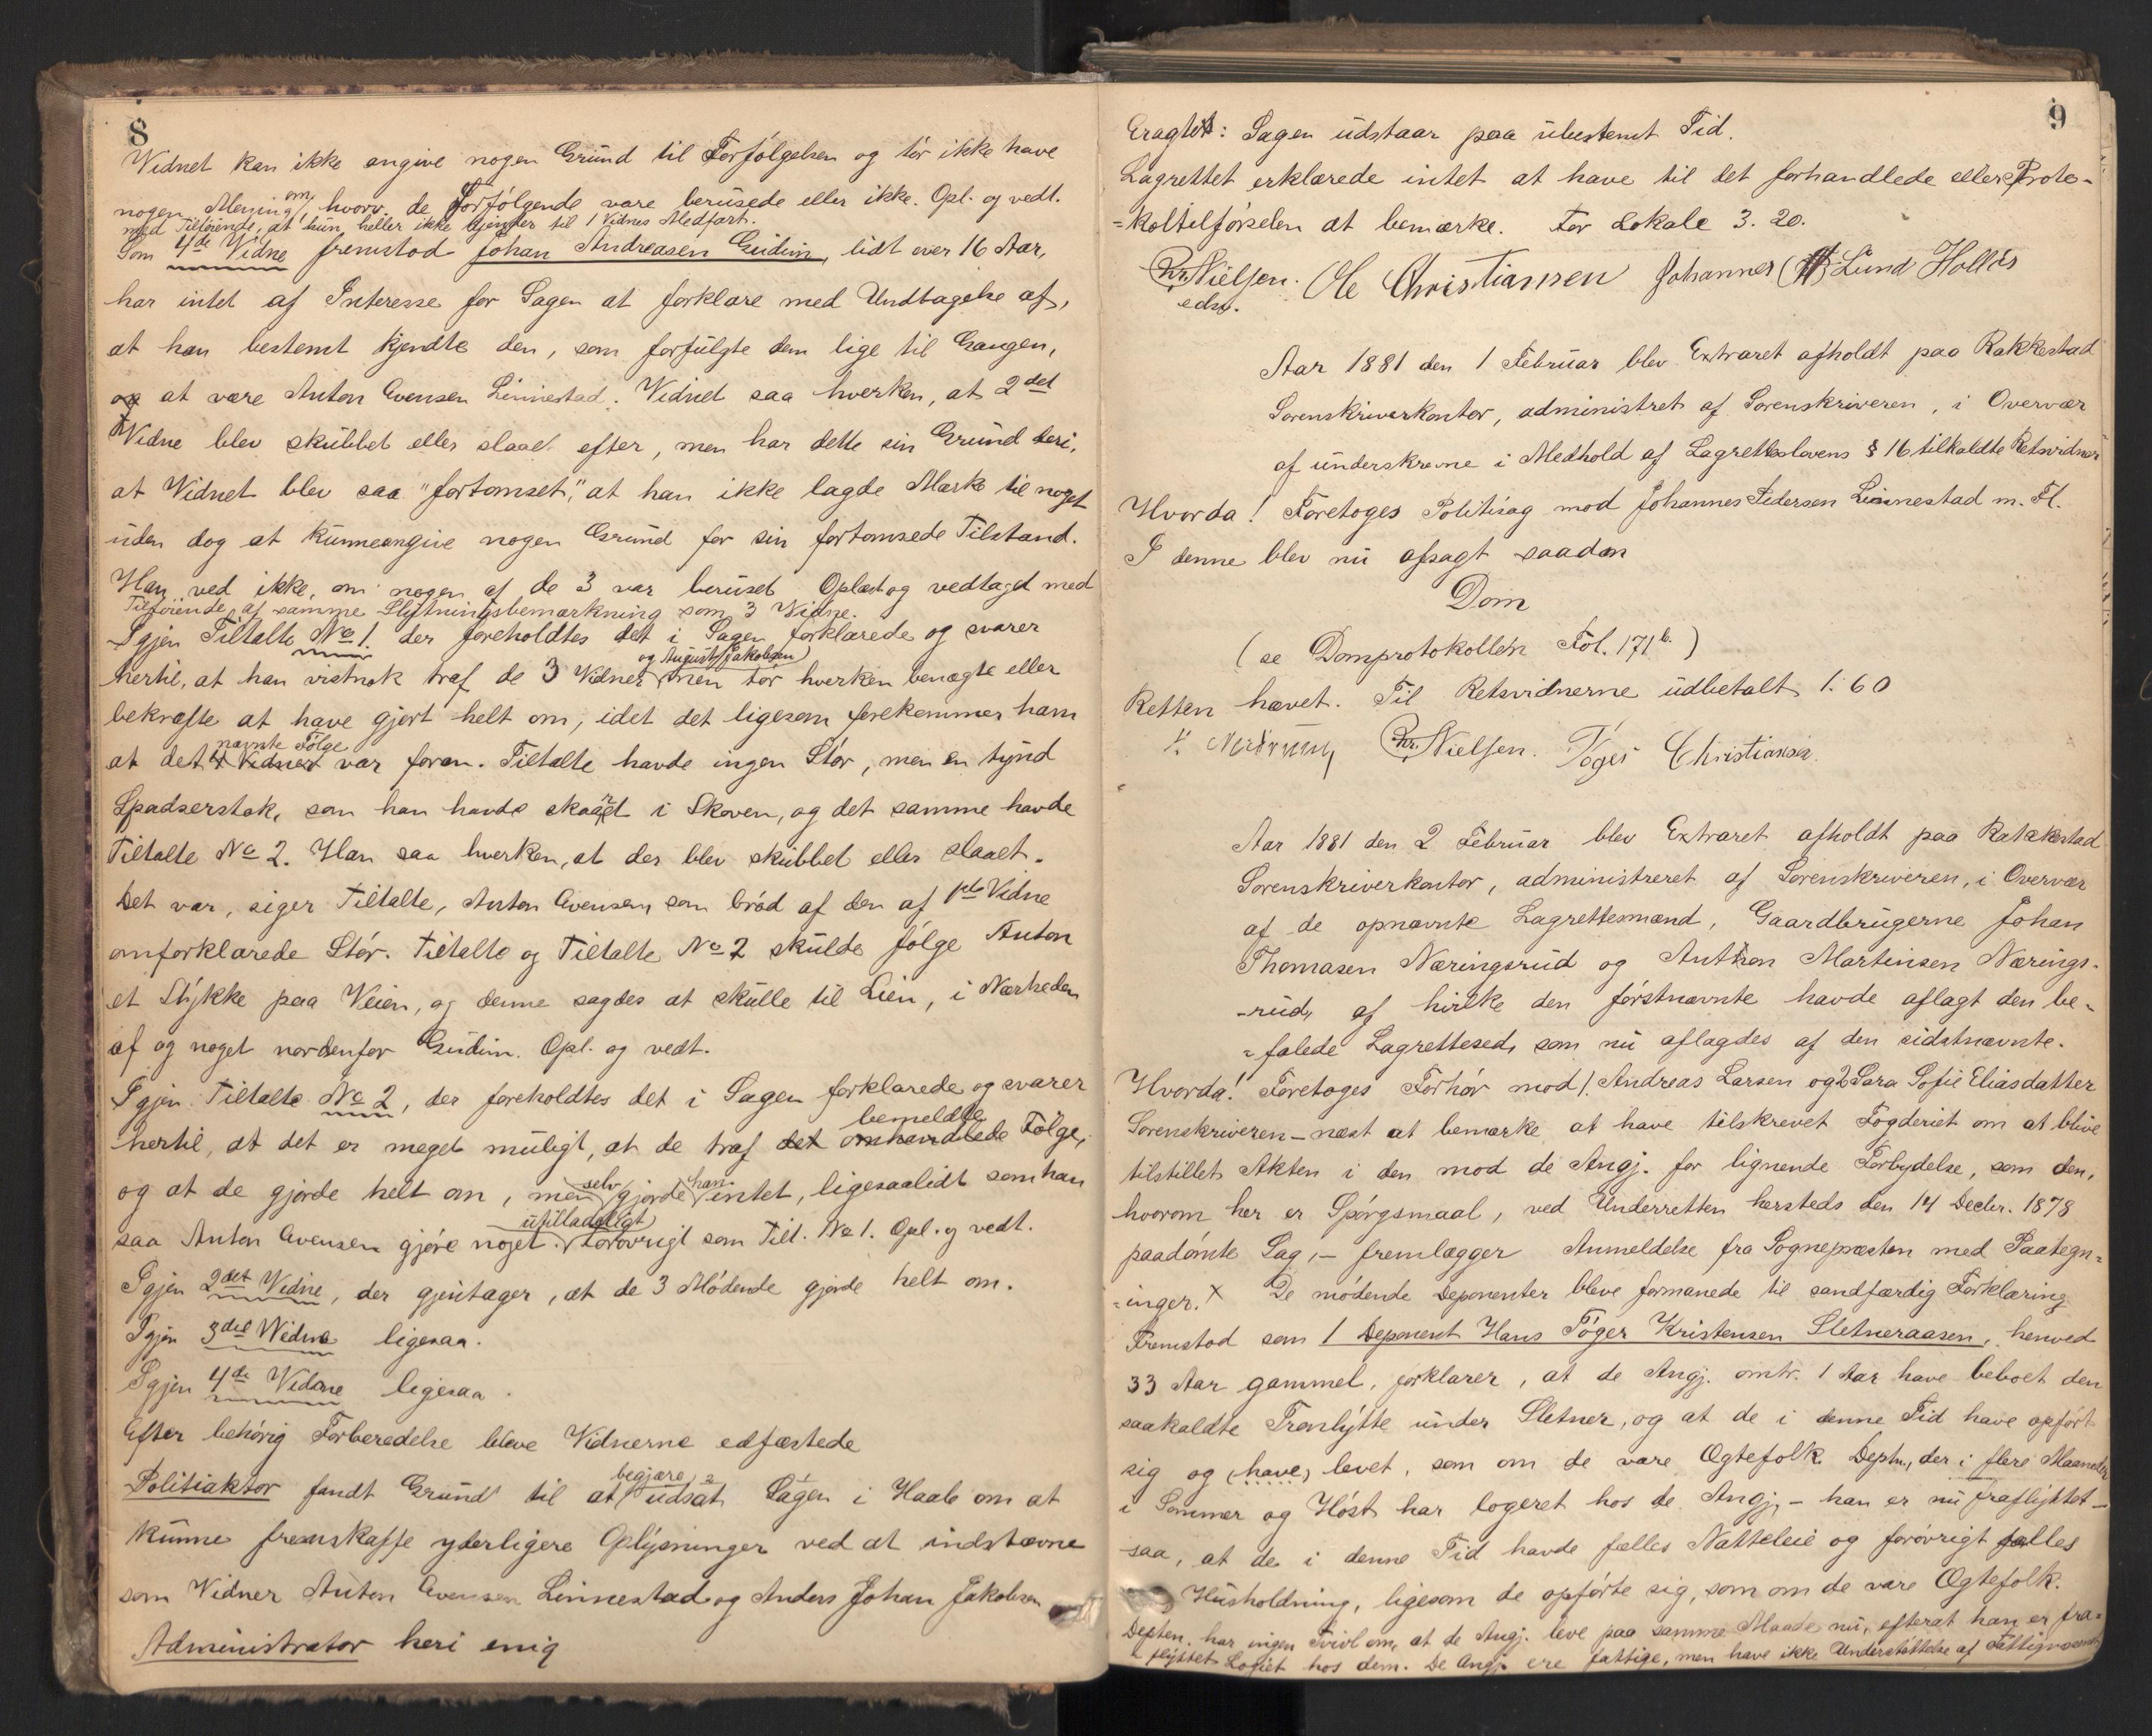 8
Vidnet kan ikke angive nogen Grund til Forfølgelsen og tør ikke have
nogen Mening om, hvorv. de Forfølgende vare berusede eller ikke. Opl. og vedt.
med Tilføiende, at hun heller ikke kjender til 1 Vidnes Medfart.
Som 4de Vidne fremstod Johan Andreasen Gudim, lidt over 16 Aar,
har intet af Interesse for Sagen at forklare med Undtagelse af,
at han bestemt kjendte den, som forfulgte dem lige til Gangen,
at være Anton Evensen Linnestad. Vidnet saa hverken, at 2det
Vidne blev skubbet eller slaaet efter, men har dette sin Grund deri,
at Vidnet blev saa "fortomset", at han ikke lagde Mærke til noget
uden dog at kunne angive nogen Grund for sin fortomsede Tilstand.
Han ved ikke, om nogen af de 3 var beruset Oplæst og vedtaget med
Tilføiende af samme Slutningsbemærkning som 3 Vidne.
Igjen Tiltalte No 1. der foreholdtes det i Sagen forklarede og svarer
og August Jakobsen
hertil, at han vistnok traf de 3 Vidner men tør hverken benægte eller
bekræfte at have gjort helt om, idet det ligesom forekommer ham
nævnte Følge
at det 4 Vidner var foran. Tiltalte havde ingen Stør, men en tynd
Spadserstok, som han havde skaaret i Skoven, og det samme havde
Tiltalte No 2. Han saa hverken, at der blev skubbet eller slaaet.
Det var, siger Tiltalte, Anton Evensen, som brød af den af 1ste Vidne
omforklarede Stør. Tiltalte og Tiltalte No 2 skulde følge Anton
et Stykke paa Veien, og denne sagdes at skulle til Lien, i Nærheden
af og noget nordenfor Gudim. Opl. og vedt.
Igjen Tiltalte No 2, der foreholdtes det i Sagen forklarede og svarer
bemeldte
hertil, at det er meget muligt, at de traf det omhandlede Følge,
og at de gjorde helt om, men selv gjorde han intet, ligesaalidt som han
utilladeligt
saa Anton Evensen gjøre noget. Forøvrigt som Tilt. No 1. Opl. og vedt.
Igjen 2det Vidne, der gjentager, at de 3 Mødende gjorde helt om.
Igjen 3die Vidne ligesaa.
Igjen 4de Vidne ligesaa.
Efter behørig Forberedelse bleve Vidnerne edfæstede
begjære
Politiaktor fandt Grund til at udsat Sagen i Haab om at
kunne fremskaffe yderligere Oplysninger ved at indstævne
som Vidner Anton Evensen Linnestad og Anders Johan Jakobsen
Administrator heri enig
9
Eragtet: Sagen udstaar paa ubestemt Tid.
Lagrettet erklærede intet at have til det forhandlede eller Proto-
=koltilførselen at bemærke. For Lokale 3. 20.
Chr. Nielsen. Ole Christiansen Johannes Lund Holles
edsv.
Aar 1881 den 1 Februar blev Extraret afholdt paa Rakkestad
Sorenskriverkontor, administret af Sorenskriveren, i Overvær
af underskrevne i Medhold af Lagretteslovens § 16 tilkaldte Retsvidner
Hvorda! Foretoges Politisag mod Johannes Pedersen Linnestad m. Fl.
I denne blev nu afsagt saadan
Dom
(se Domprotokollen Fol. 171 b.)
Retten hævet. Til Retsvidnerne udbetalt 1. 60
Chr. Nielsen. Tøger Christiansen
Aar 1881 den 2 Februar blev Extraret afholdt paa Rakkestad
Sorenskriverkontor, administreret af Sorenskriveren, i Overvær
af de opnævnte Lagrettesmænd, Gaardbrugerne Johan
Thomasen Næringsrud og Anthon Martinsen Nærings-
-rud, af hvilke den førstnævnte havde aflagt den be-
=falede Lagrettesed, som nu aflagdes af den sidstnævnte.
Hvorda! Foretoges Forhør mod 1. Andreas Larsen og 2 Sara Sofie Eliasdatter
Sorenskriveren – næst at bemærke at have tilskrevet Fogderiet om at blive
tilstillet Akten i den mod de Angj. for lignende Forbrydelse, som den,
hvorom her er Spørgsmaal, ved Underretten hersteds den 14 Decbr. 1878
paadømte Sag, – fremlægger Anmeldelse fra Sognepræsten med Paategn=
=inger. x De mødende Deponenter bleve formanede til sandfærdig Forklaring
Fremstod som 1 Deponent Hans Tøger Kristensen Sletneraasen, henved
33 Aar gammel, forklarer, at de Angj. omtr. 1 Aar have beboet den
saakaldte Tronhytte under Sletner, og at de i denne Tid have opført
sig og (have) levet, som om de vare Ægtefolk. Deptn., der i flere Maaneder
i Sommer og Høst har logeret hos de Angj, – han er nu fraflyttet –
saa, at de i denne Tid havde fælles Natteleie og forøvrigt fælles
Husholdning, ligesom de opførte sig, som om de vare Ægtefolk.
Depten. har ingen Tvivl om, at de Angj. leve paa samme Maade nu, efterat han er fra=
flyttet Logiet hos dem. De Angj. ere fattige, men have ikke Understøttelse af Fattigvæsenet